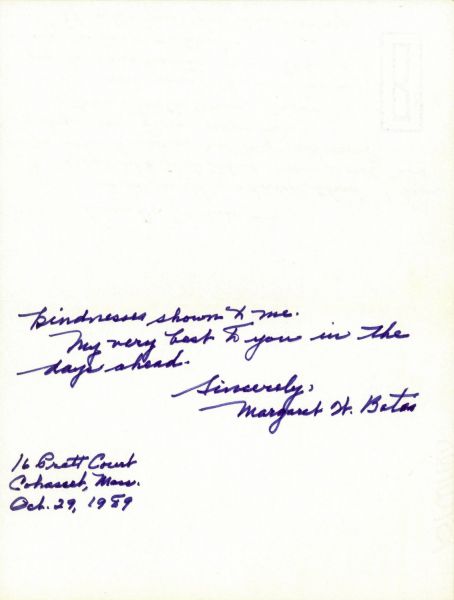 kindnesses shown to me.
My very best to you in the
days ahead.
Sincerely,
Margaret H. Bates
16 Pratt Court
Cohasset, Mass.
Oct. 29, 1989